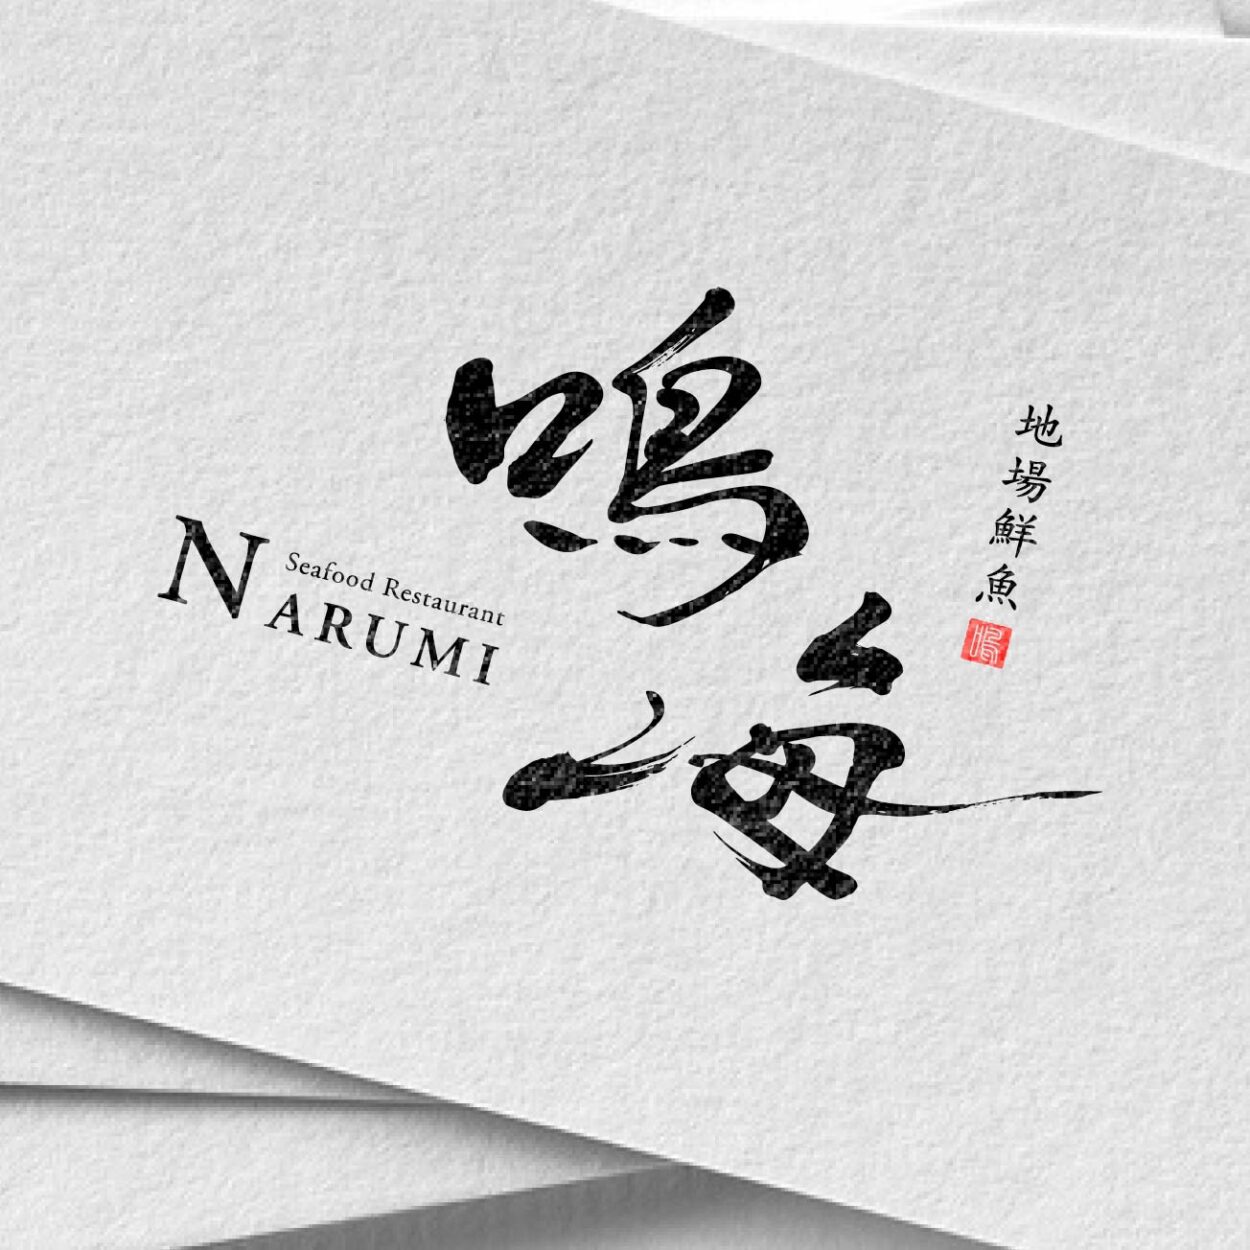 鳴海
地場鮮魚
鳴
Seafood Restaurant
NARUMI